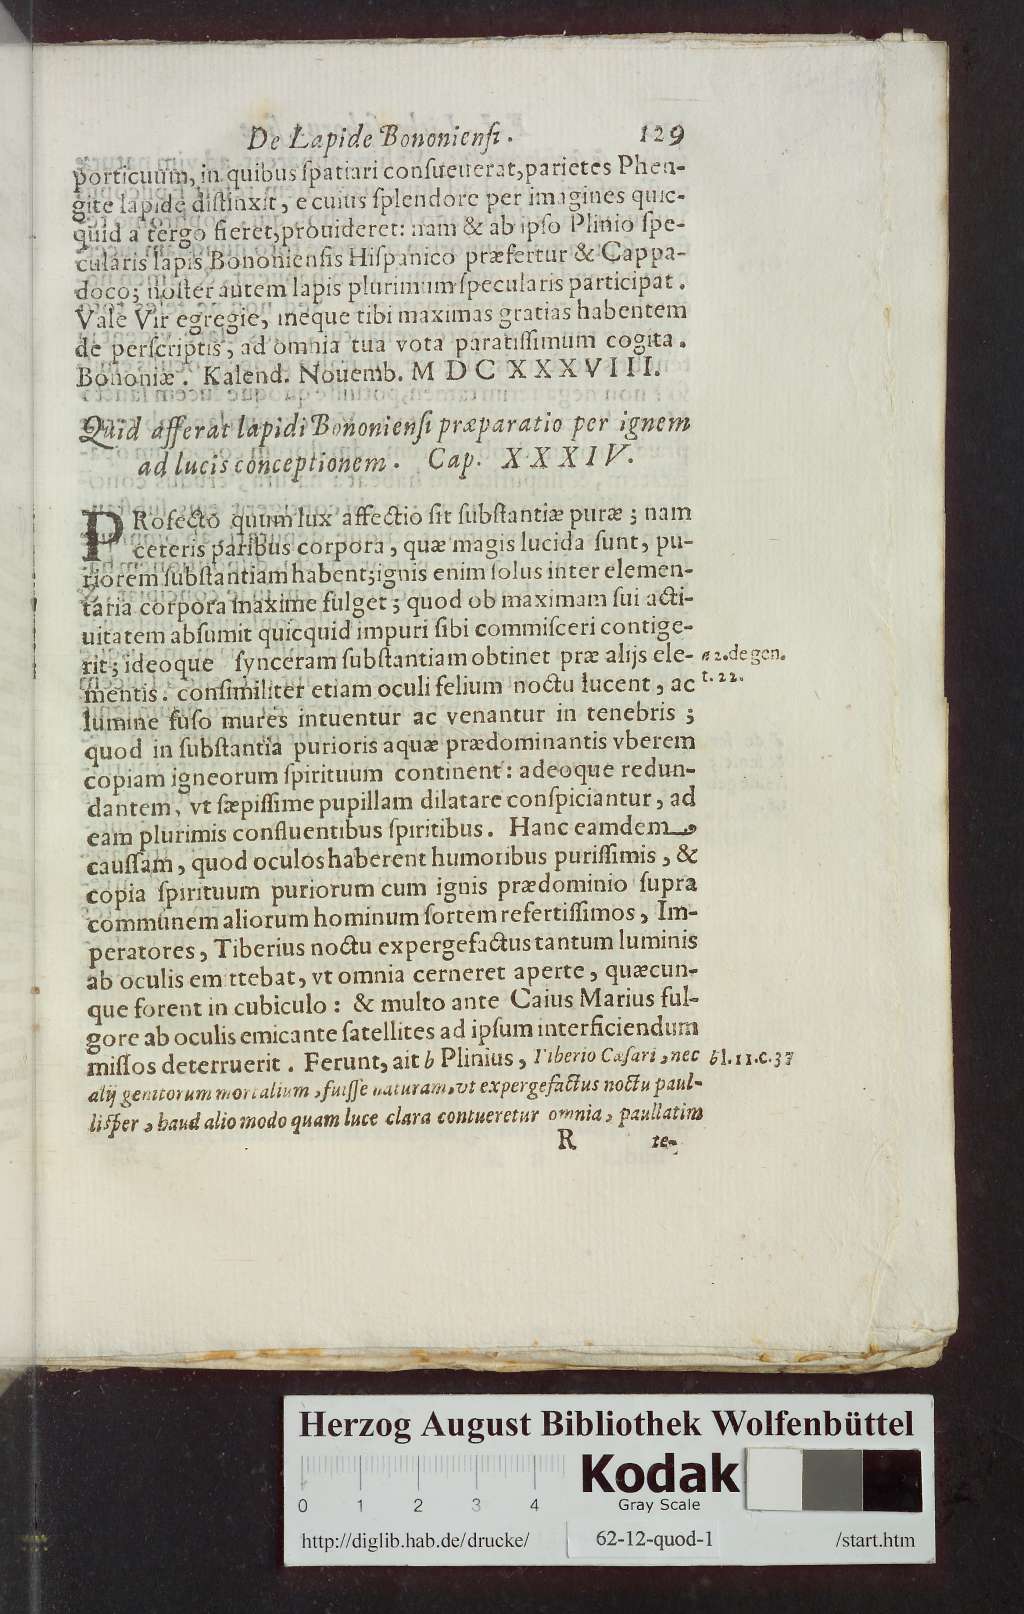 De Lapide Bononiensi. 129
porticuum, in quibus spatiari consueuerat, parietes Phen-
gite lapide distinxit, e cuius splendore per imagines quic-
quid a tergo fieret, prouideret: nam & ab ipso Plinio spe-
cularis lapis Bononiensis Hispanico præfertur & Cappa-
doco; noster autem lapis plurimum specularis participat.
Vale Vir egregie, meque tibi maximas gratias habentem
de perscriptis, ad omnia tua vota paratissimum cogita.
Bononiæ. Kalend. Nouemb. M D C X X X V I I I.
Quid afferat lapidi Bononiensi præparatio per ignem
ad lucis conceptionem. Cap. X X X I V.
PRofecto quum lux affectio sit substantiæ puræ; nam
ceteris paribus corpora, quæ magis lucida sunt, pu-
riorem substantiam habent; ignis enim solus inter elemen-
taria corpora maxime fulget; quod ob maximam sui acti-
uitatem absumit quicquid impuri sibi commisceri contige-
rit; ideoque synceram substantiam obtinet præ alijs ele- a 2. de gen.
mentis. consimiliter etiam oculi felium noctu lucent, ac t. 22.
lumine fuso mures intuentur ac venantur in tenebris;
quod in substantia purioris aquæ prædominantis vberem
copiam igneorum spirituum continent: adeoque redun-
dantem, vt sæpissime pupillam dilatare conspiciantur, ad
eam plurimis confluentibus spiritibus. Hanc eamdem
caussam, quod oculos haberent humoribus purissimis, &
copia spirituum puriorum cum ignis prædominio supra
communem aliorum hominum sortem refertissimos, Im-
peratores, Tiberius noctu expergefactus tantum luminis
ab oculis emittebat, vt omnia cerneret aperte, quæcun-
que forent in cubiculo: & multo ante Caius Marius ful-
gore ab oculis emicante satellites ad ipsum interficiendum
missos deterruerit. Ferunt, ait b Plinius, Tiberio Cæsari, nec b l. 11. c. 37
alij genitorum mortalium, fuisse naturam, vt expergefactus noctu paul-
lisper, haud alio modo quam luce clara contueretur omnia, paullatim
R te-
Herzog August Bibliothek Wolfenbüttel
0 1 2 3 4
Kodak
Gray Scale
http://diglib.hab.de/drucke/ 62-12-quod-1 /start.htm